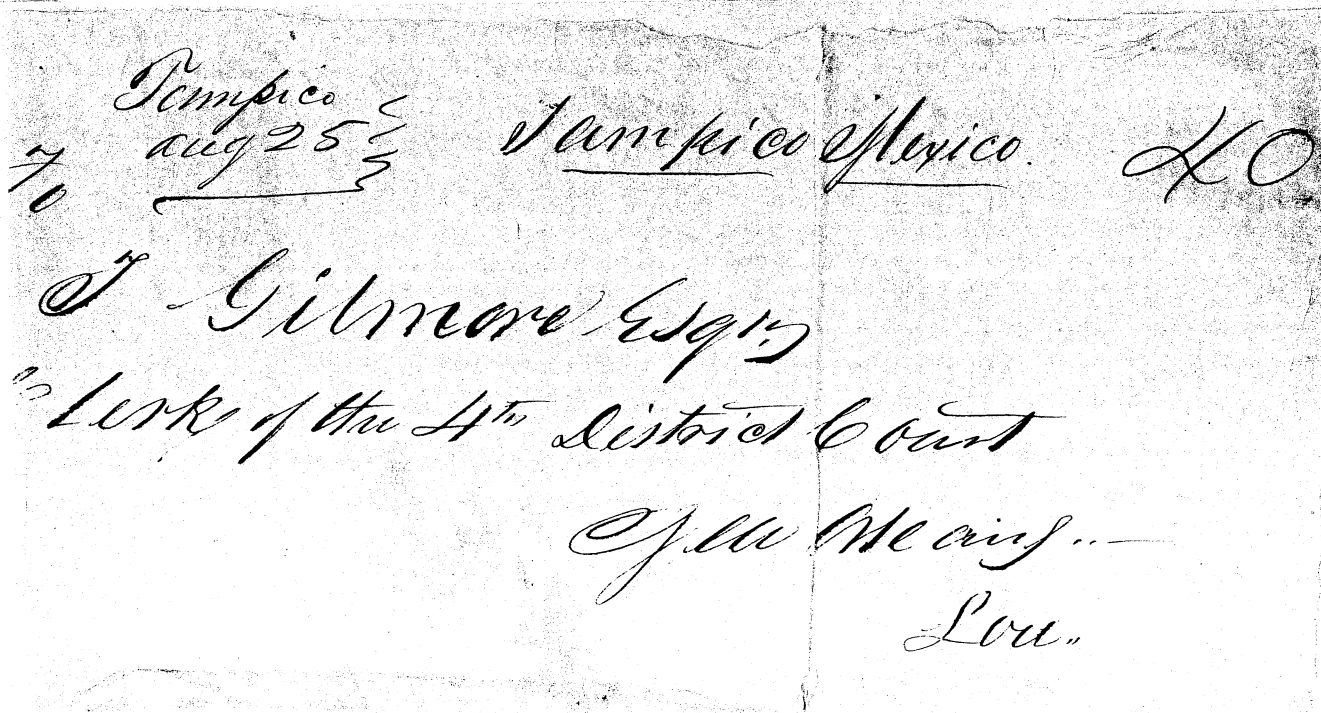 Tampico
aug 25
Tampico Mexico. 40
T Gilmore Esqr
Clerk of the 4th District Court
New Orleans
Lou.